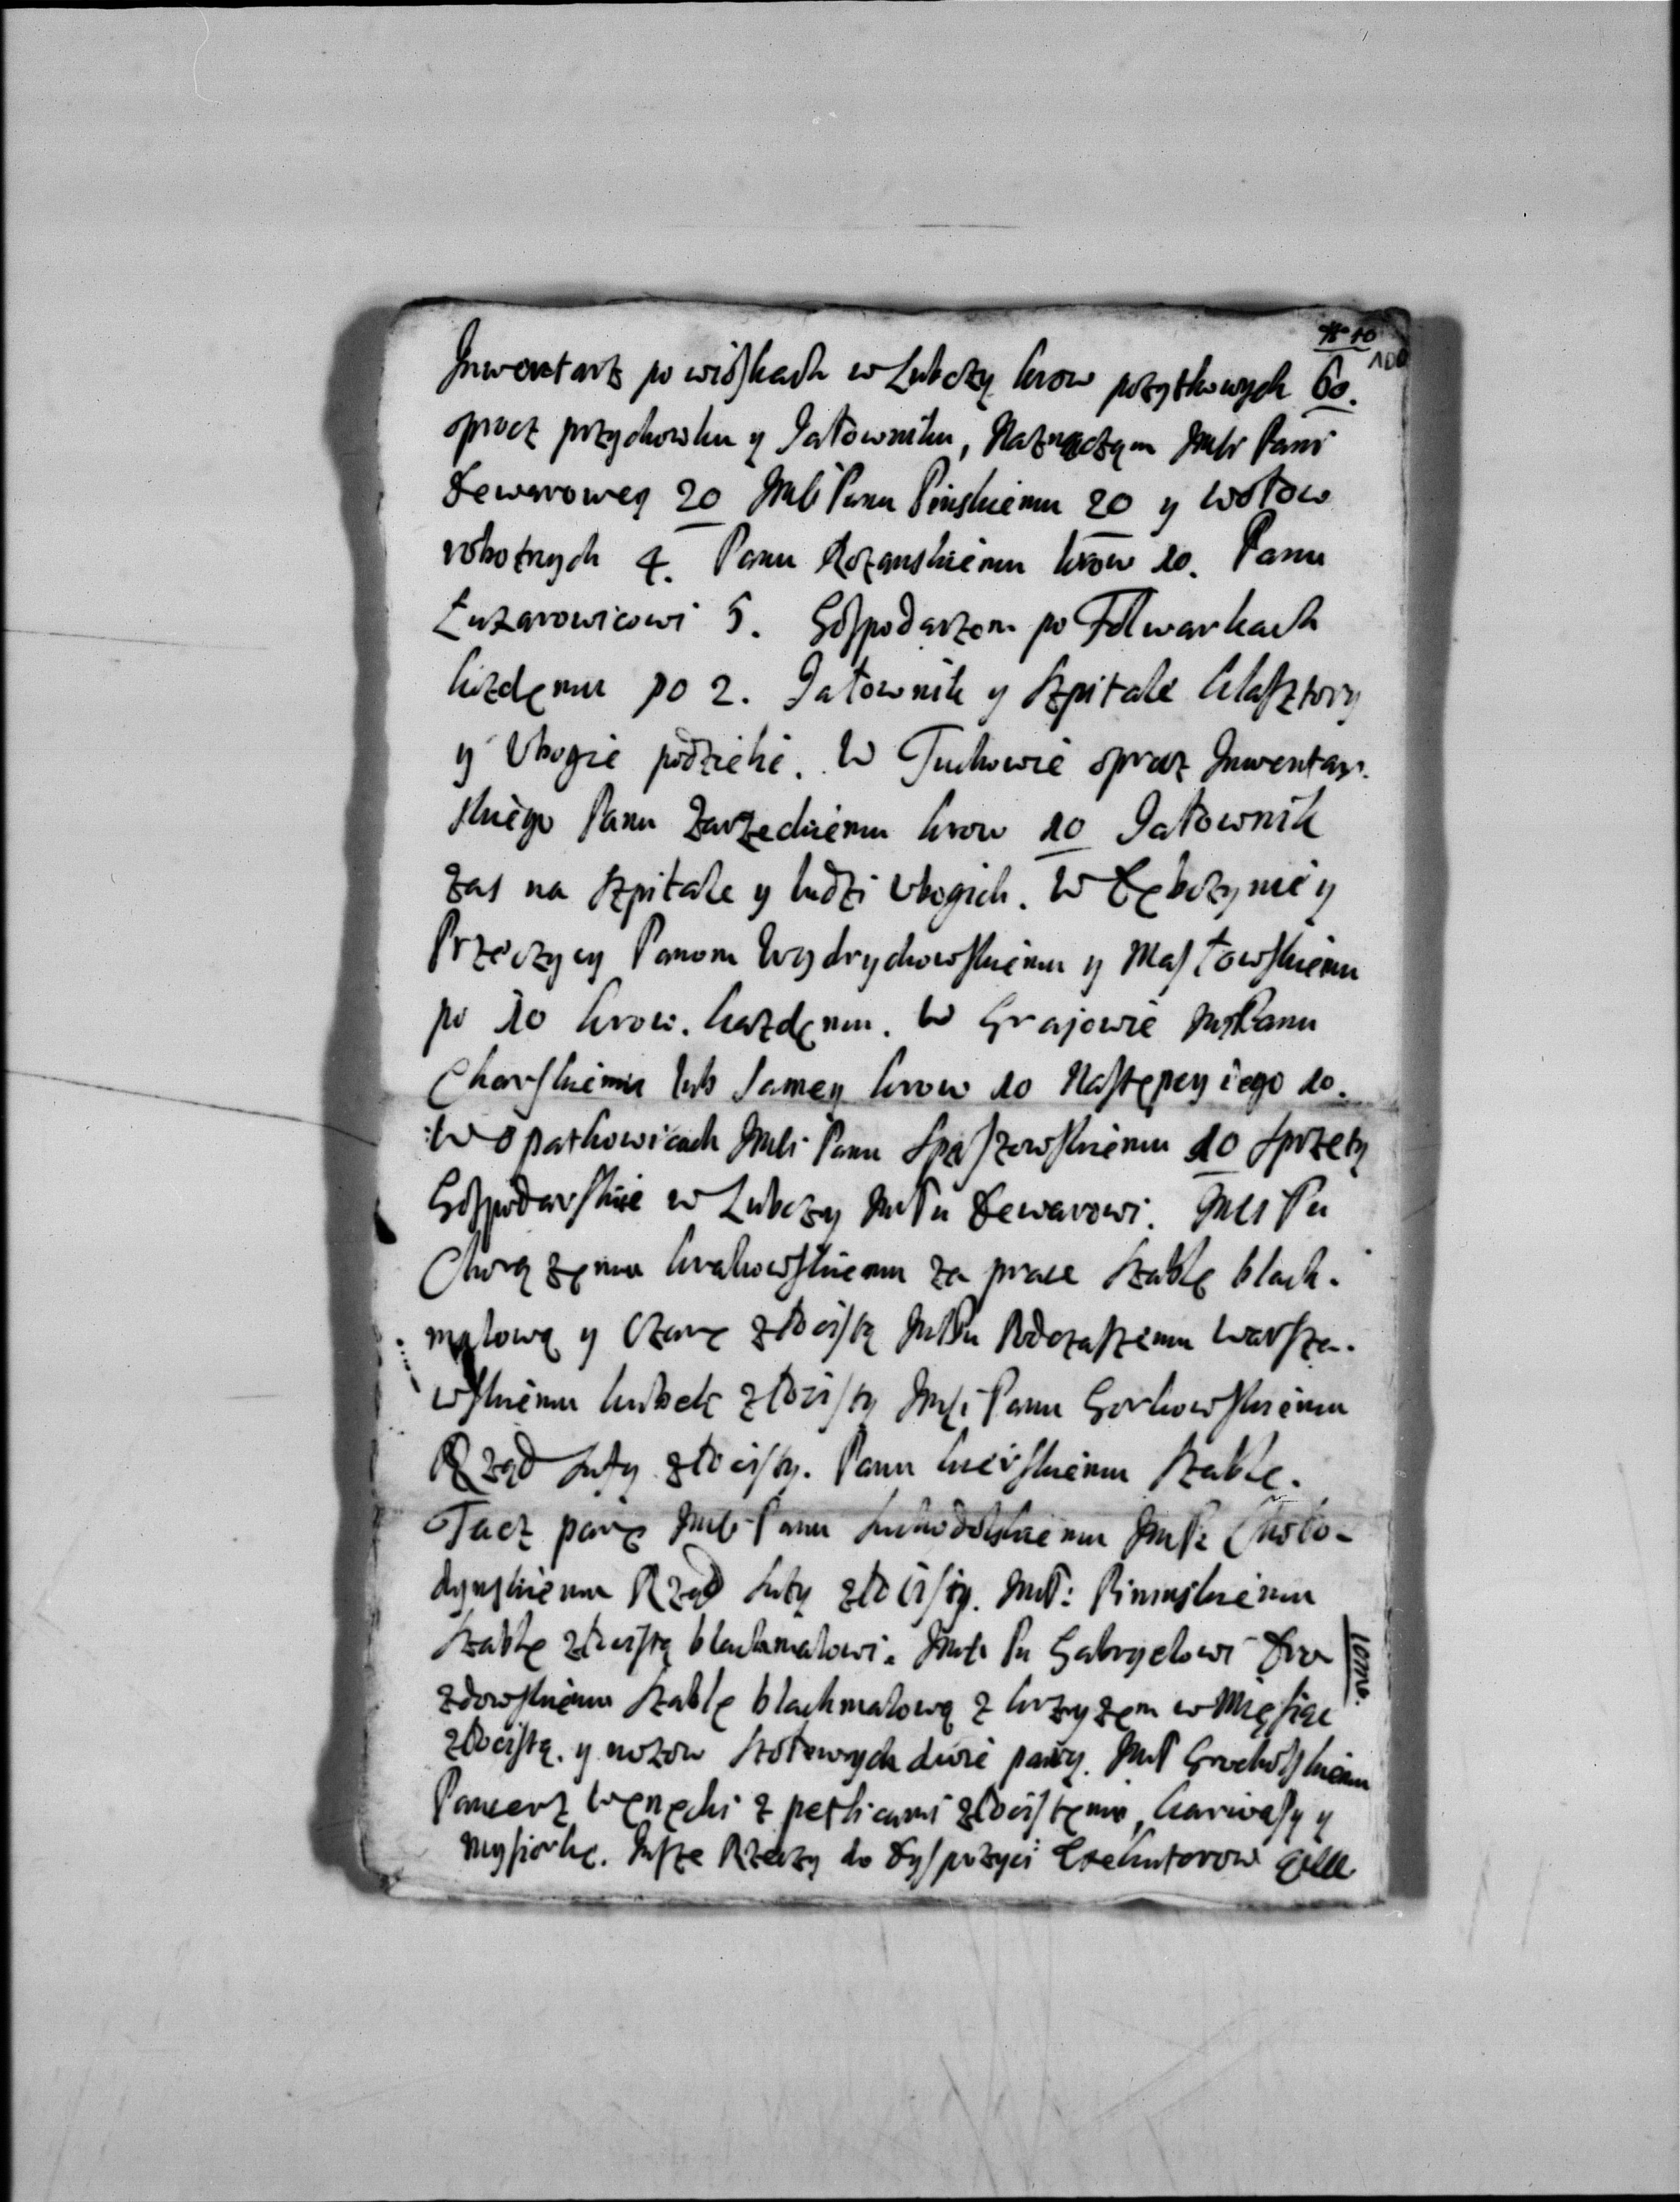 No 10
100
Inwentarz po wioskach w Lubczy krow pozytkowych 60.
oprocz przychowku y Jałowniku, Naznaczam Jmci Pani
Dewarowey 20 Jmci Panu Pinskiemu 20 y wołow
robotnych 4. Panu Rozanskiemu krow 10. Panu
Łuzarowicowi 5. Gospodarzom po Folwarkach
kazdemu po 2. Jałownik y szpitale klasztory
y Vbogie podzieli. W Tuchowie oprocz Inwentar-
skiego Panu Zarzeckiemu krow 10 Jałownik
zas na szpitale y ludzi Vbogich. W Dębczynie y
Przeczycy Panom Wydrychowskiemu y Masłowskiemu
po 10 krow. kazdemu. W Grajowie JmPanu
Charskiemu lub samey krow 10 Nastepcy iego 10.
W Opatkowicach Jmci Panu Spaszowskiemu 10 sprzęty
Gospodarskie w Lubczy JmPu Dewarowi. Jmci Pu
Chorązemu krakowskiemu za prace szablę blach-
małową y Czarę złocistą JmPu Podczaszemu Warsza-
wskiemu kubek złocisty Jmci Panu Gorkowskiemu
Rząd suty złocisty. Panu kierskiemu szablę.
Tacz parę Jmci Panu Suchodolskiemu JmP: Choło-
dynskiemu Rząd suty złocisty. JmP: Pininskiemu
szablę złocistą blachmalowi. Jmci Pu Gabryelowi Dro
zdowskiemu szablę blachmalową z krzyzem w Miesiąc
złocistą. y nozow stołowych dwie pary. JmP Grocholskiemu
Pancerz Węnecki z petlicami złocistemi, karwasy y
mysiorkę. Insze Rzeczy do dyspozyci Exekutorow